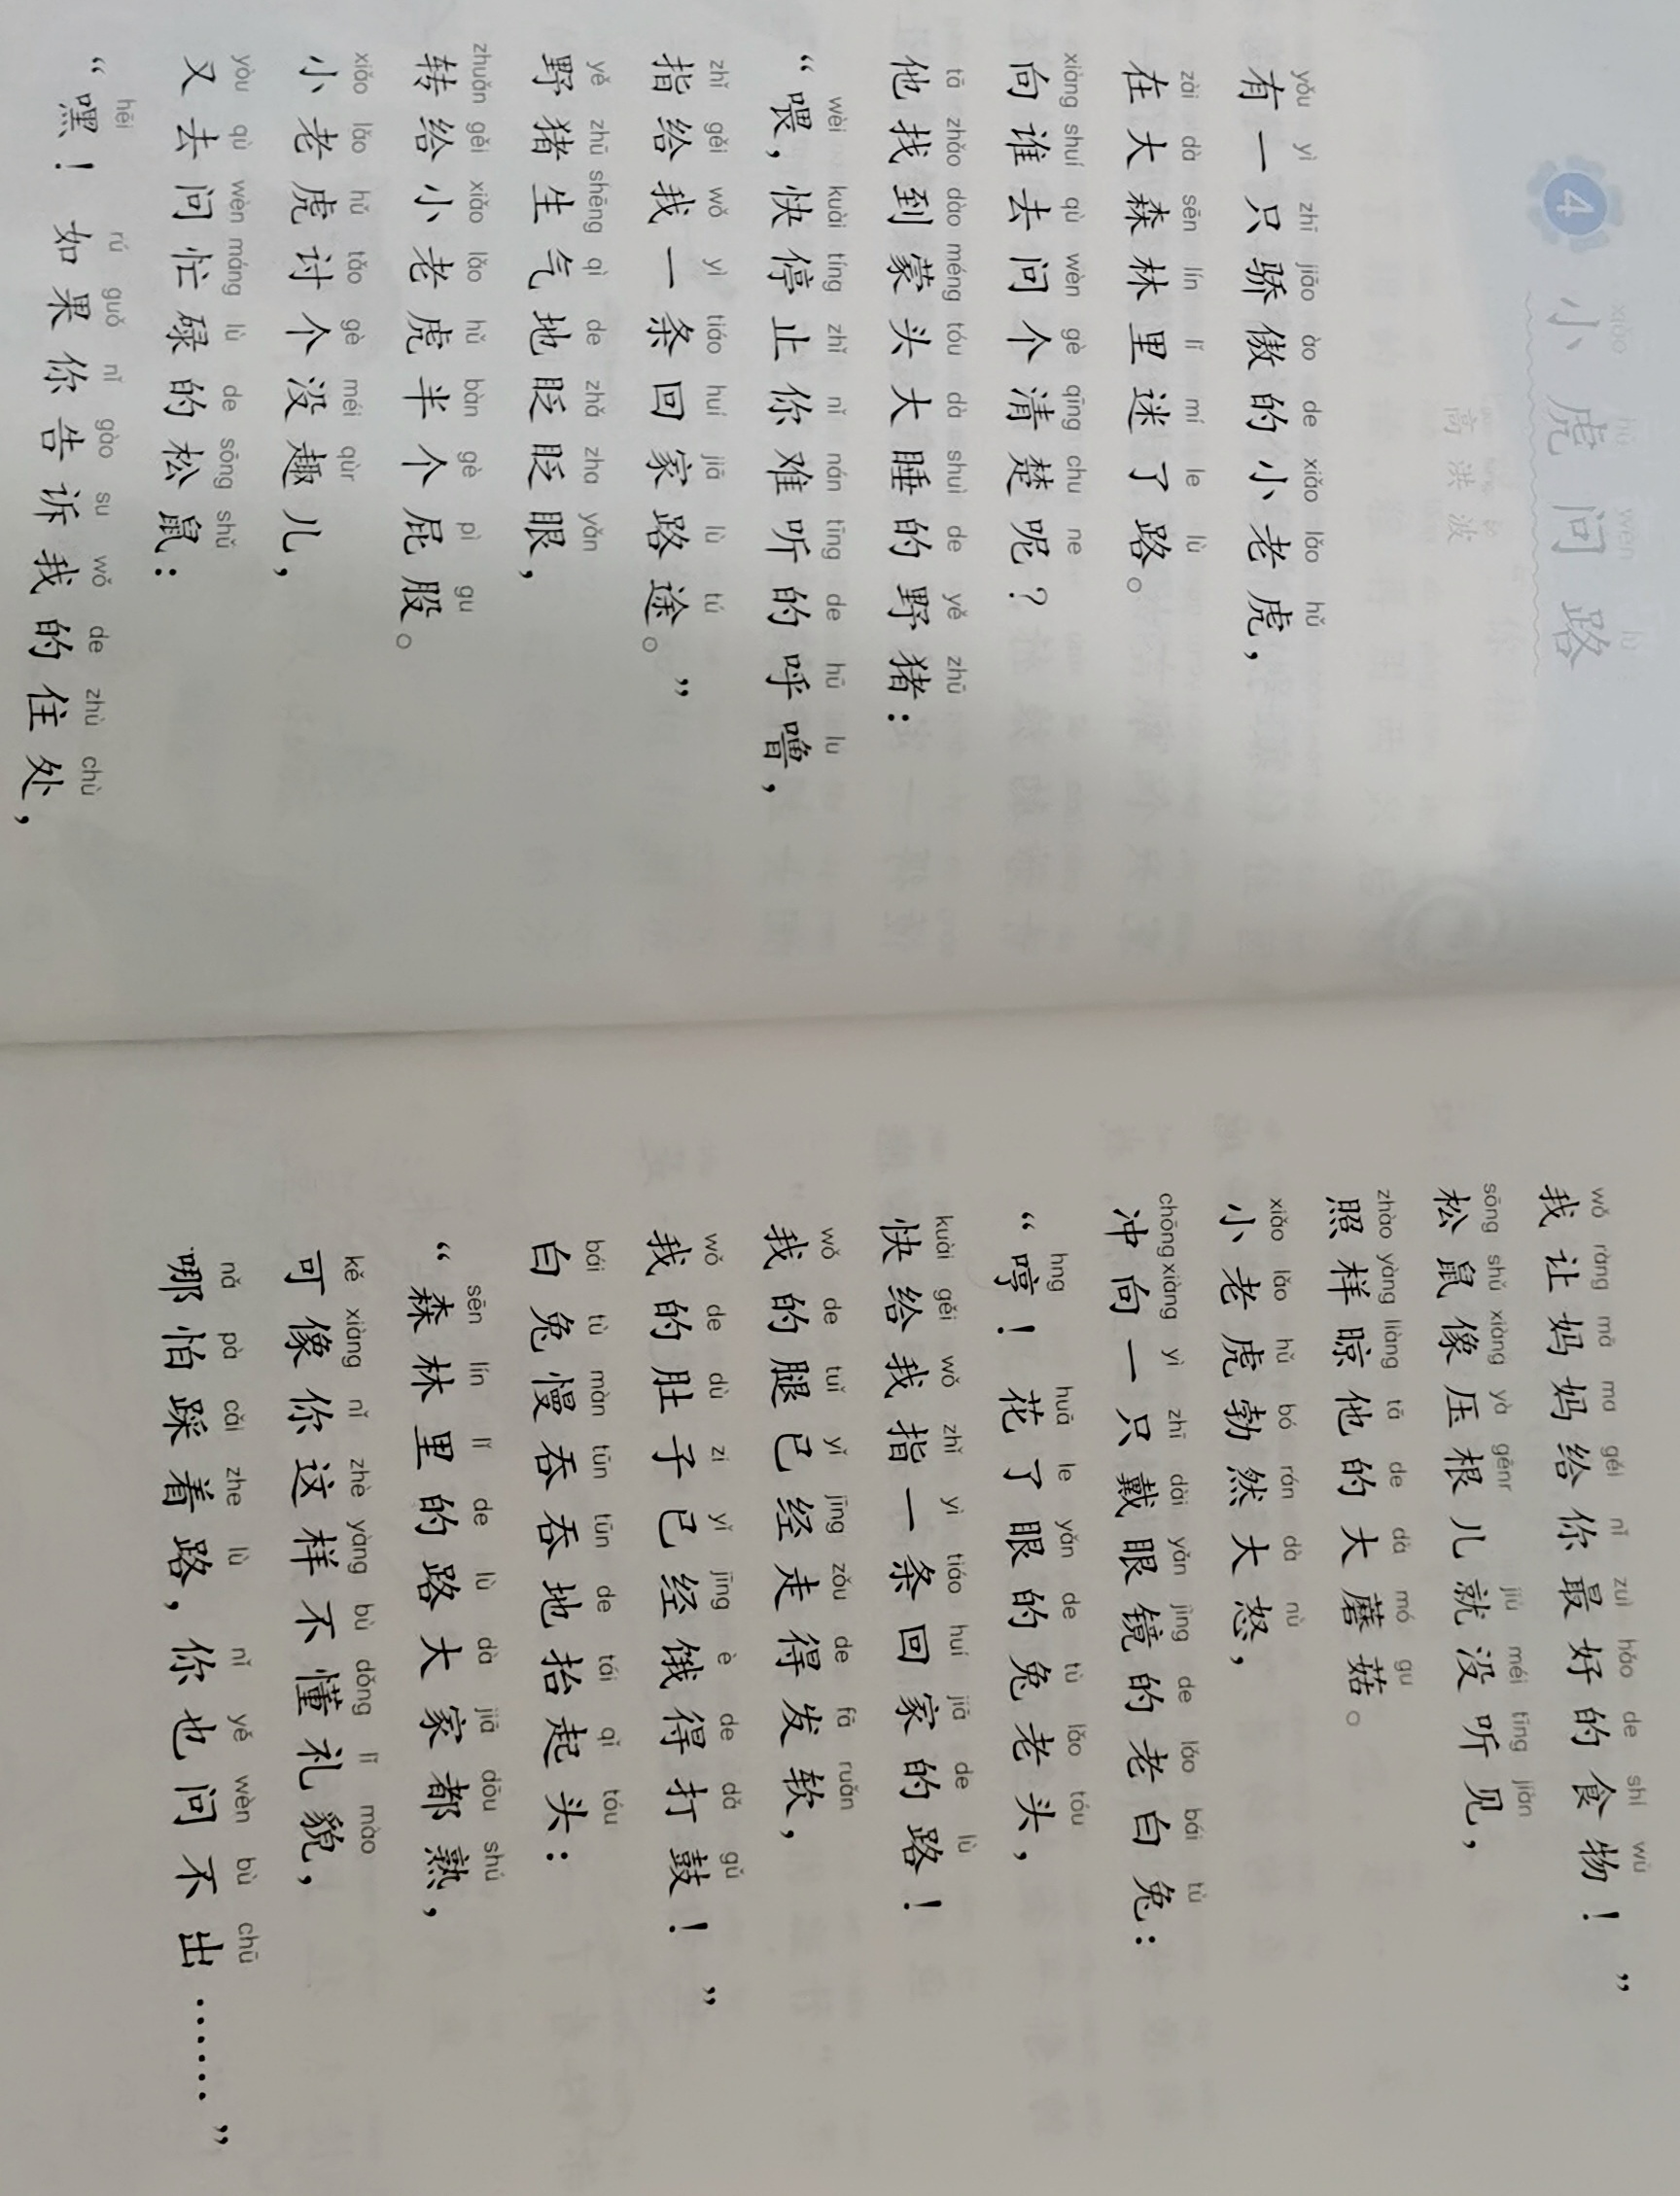 4 xiǎo hǔ wèn lù
小虎问路
高洪波
yǒu yì zhī jiāo ào de xiǎo lǎo hǔ
有一只骄傲的小老虎，
zài dà sēn lín lǐ mí le lù
在大森林里迷了路。
xiàng shuí qù wèn gè qīng chu ne
向谁去问个清楚呢？
tā zhǎo dào méng tóu dà shuì de yě zhū
他找到蒙头大睡的野猪：
wèi kuài tíng zhǐ nǐ nán tīng de hū lu
“喂，快停止你难听的呼噜，
zhǐ gěi wǒ yì tiáo huí jiā lù tú
指给我一条回家路途。”
yě zhū shēng qì de zhǎ zha yǎn
野猪生气地眨眨眼，
zhuǎn gěi xiǎo lǎo hǔ bàn gè pì gu
转给小老虎半个屁股。
xiǎo lǎo hǔ tǎo gè méi qùr
小老虎讨个没趣儿，
yòu qù wèn máng lù de sōng shǔ
又去问忙碌的松鼠：
hēi rú guǒ nǐ gào su wǒ de zhù chù
“嘿！如果你告诉我的住处，
wǒ ràng mā ma gěi nǐ zuì hǎo de shí wù
我让妈妈给你最好的食物！”
sōng shǔ xiàng yà gēnr jiù méi tīng jiàn
松鼠像压根儿就没听见，
zhào yàng liàng tā de dà mó gu
照样晾他的大蘑菇。
xiǎo lǎo hǔ bó rán dà nù
小老虎勃然大怒，
chōng xiàng yì zhī dài yǎn jìng de lǎo bái tù
冲向一只戴眼镜的老白兔：
hng huā le yǎn de tù lǎo tóu
“哼！花了眼的兔老头，
kuài gěi wǒ zhǐ yì tiáo huí jiā de lù
快给我指一条回家的路！
wǒ de tuǐ yǐ jīng zǒu de fā ruǎn
我的腿已经走得发软，
wǒ de dù zi yǐ jīng è de dǎ gǔ
我的肚子已经饿得打鼓！”
bái tù màn tūn tūn de tái qǐ tóu
白兔慢吞吞地抬起头：
sēn lín lǐ de lù dà jiā dōu shú
“森林里的路大家都熟，
kě xiàng nǐ zhè yàng bù dǒng lǐ mào
可像你这样不懂礼貌，
nǎ pà cǎi zhe lù nǐ yě wèn bù chū
哪怕踩着路，你也问不出……”